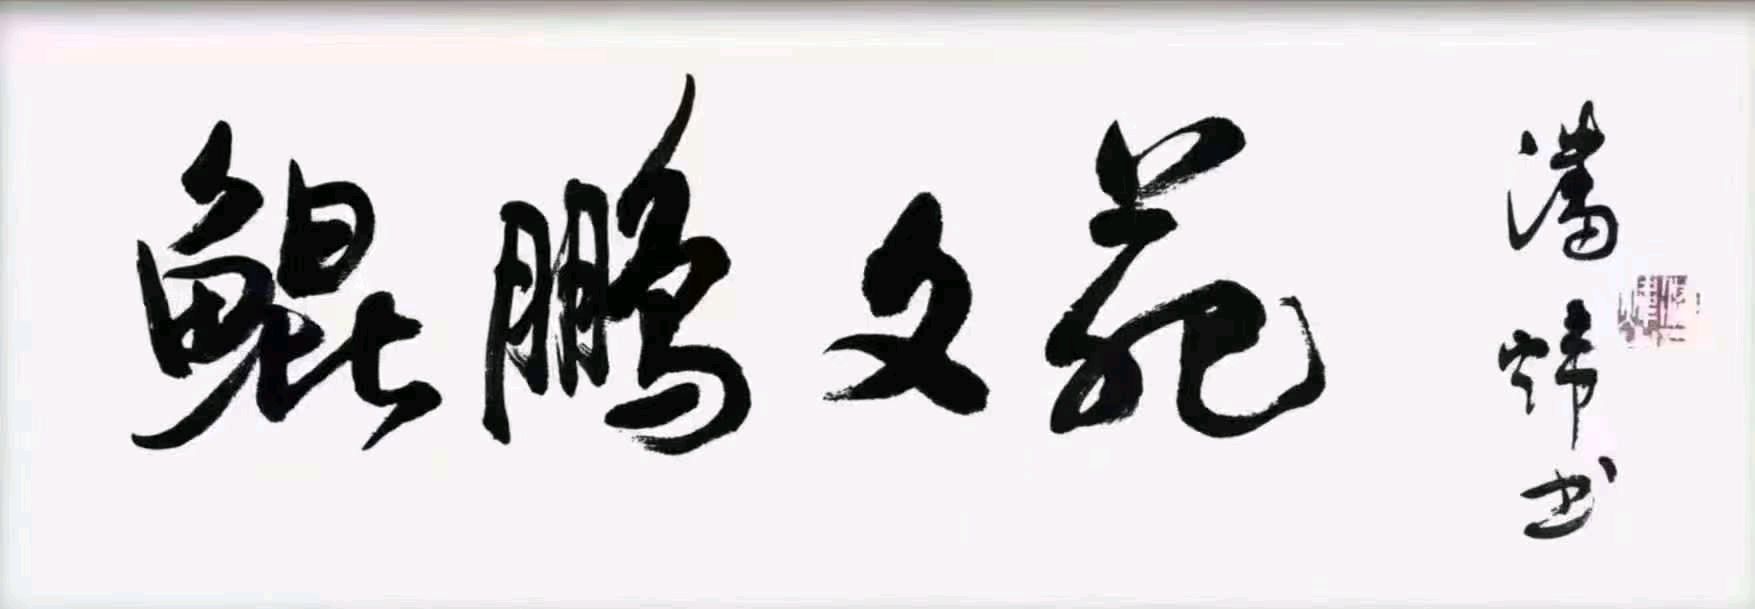 鲲鹏文苑
潘炜书